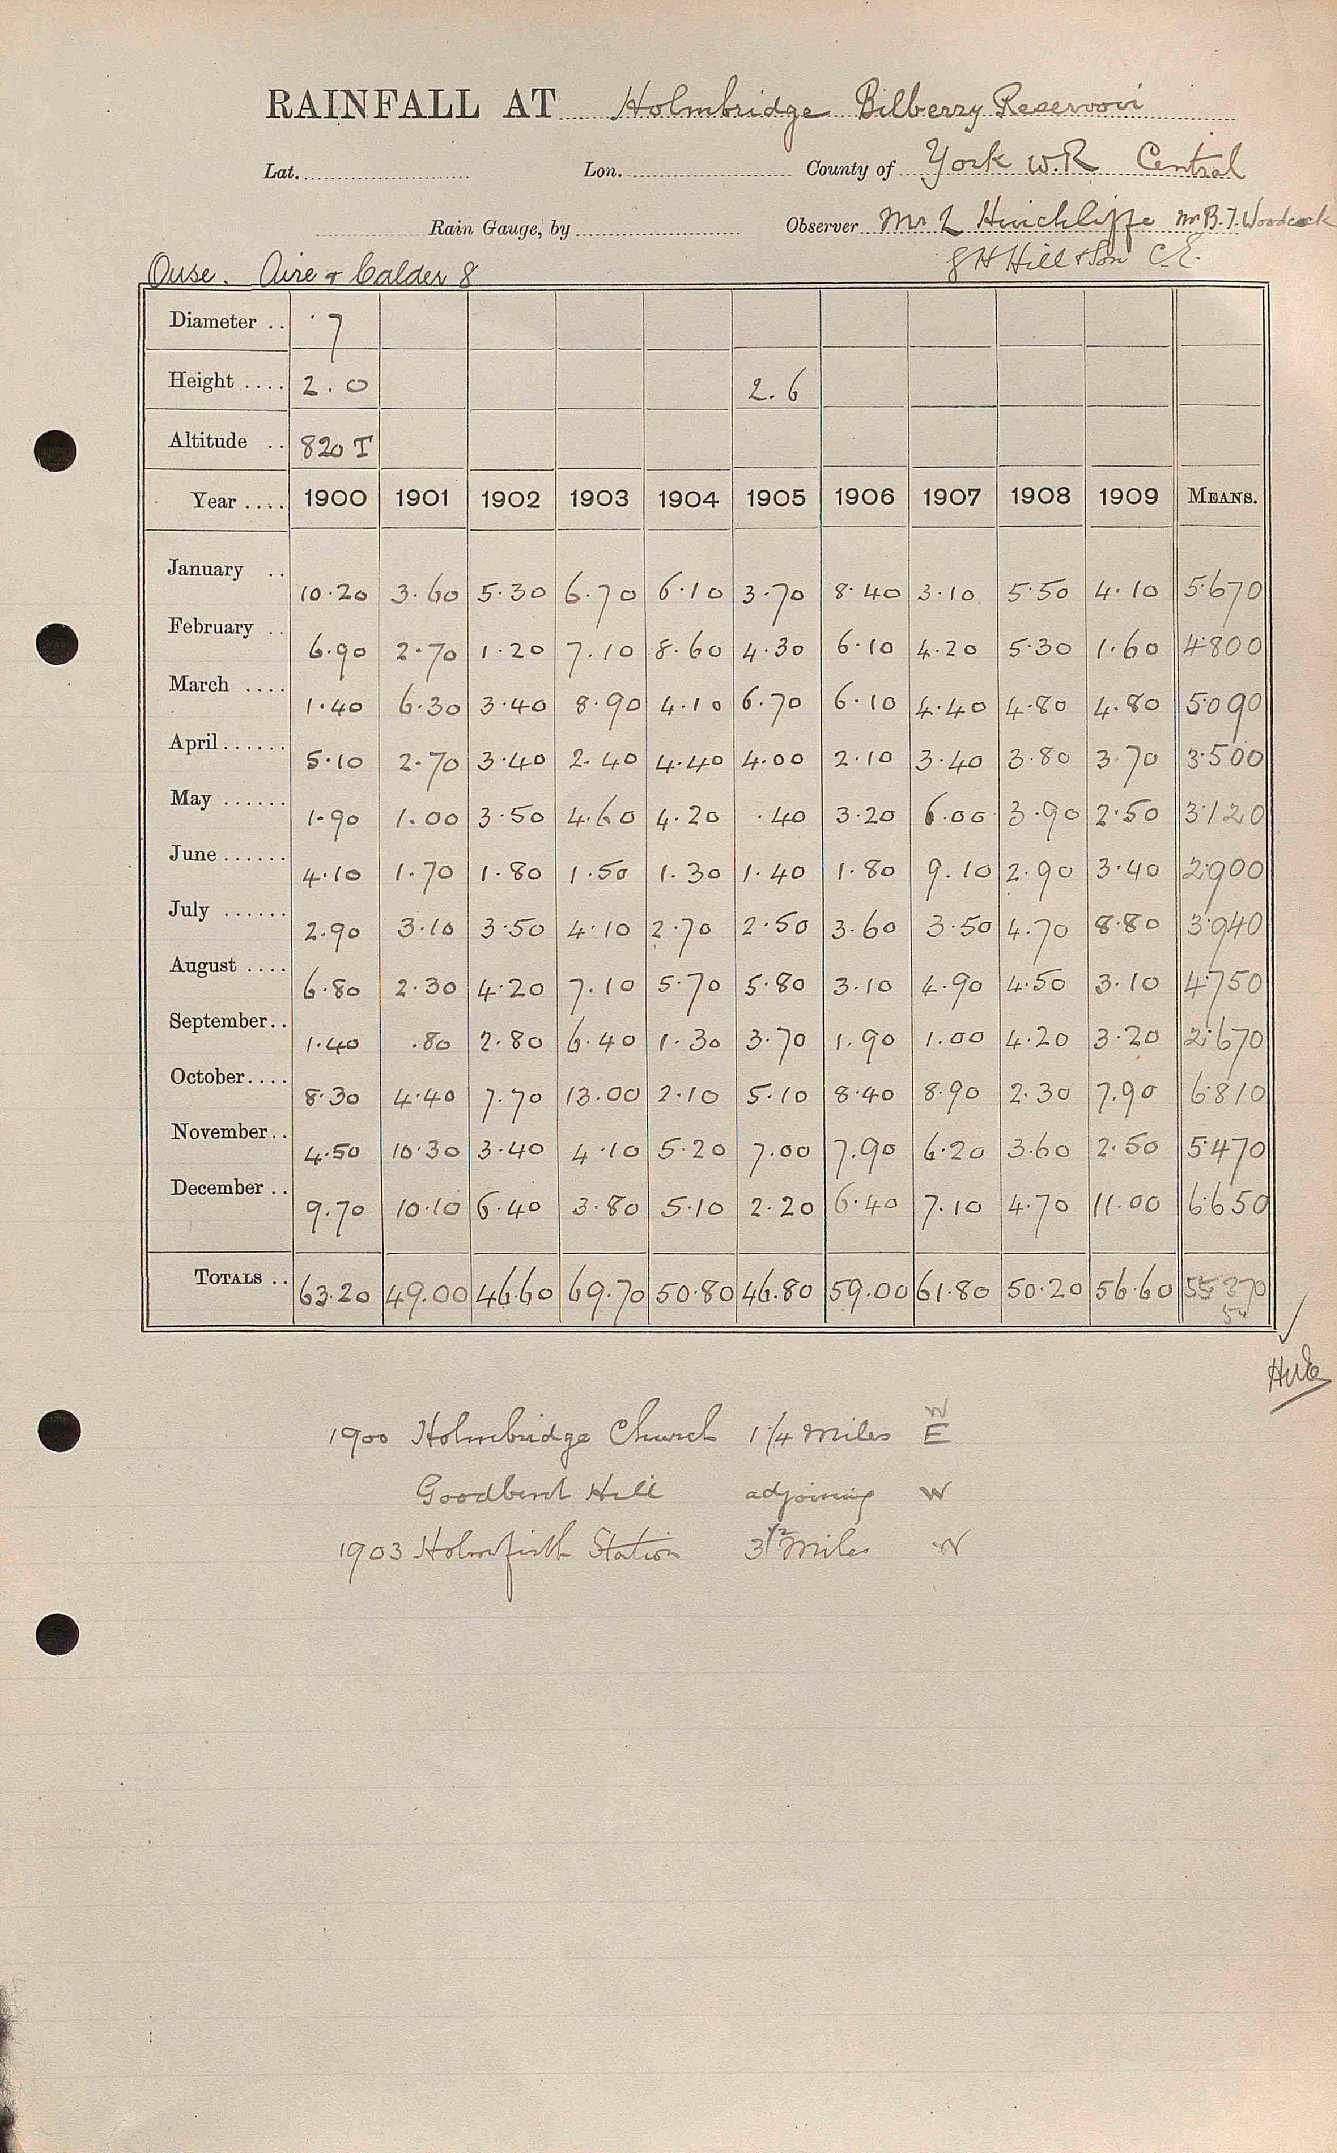 RAINFALL AT Holmbridge Bilberry Reservoir
Lat. Lon. County of York W.R Central
Rain Gauge, by Observer Mr L Hinchliffe Mr B.T. Woodcock
G H Hill & Son C.E.
Ouse. Aire & Calder 8
Diameter .. 7
Height .... 2.0 2.6
Altitude .. 820 T
Year .... 1900 1901 1902 1903 1904 1905 1906 1907 1908 1909 MEANS.
January .. 10.20 3.60 5.30 6.70 6.10 3.70 8.40 3.10 5.50 4.10 5.670
February .. 6.90 2.70 1.20 7.10 8.60 4.30 6.10 4.20 5.30 1.60 4.800
March .... 1.40 6.30 3.40 8.90 4.10 6.70 6.10 4.40 4.80 4.80 5.090
April...... 5.10 2.70 3.40 2.40 4.40 4.00 2.10 3.40 3.80 3.70 3.500
May ...... 1.90 1.00 3.50 4.60 4.20 .40 3.20 6.00 3.90 2.50 3.120
June...... 4.10 1.70 1.80 1.50 1.30 1.40 1.80 9.10 2.90 3.40 2.900
July ...... 2.90 3.10 3.50 4.10 2.70 2.50 3.60 3.50 4.70 8.80 3.940
August .... 6.80 2.30 4.20 7.10 5.70 5.80 3.10 4.90 4.50 3.10 4.750
September.. 1.40 .80 2.80 6.40 1.30 3.70 1.90 1.00 4.20 3.20 2.670
October.... 8.30 4.40 7.70 13.00 2.10 5.10 8.40 8.90 2.30 7.90 6.810
November.. 4.50 10.30 3.40 4.10 5.20 7.00 7.90 6.20 3.60 2.50 5.470
December .. 9.70 10.10 6.40 3.80 5.10 2.20 6.40 7.10 4.70 11.00 6.650
TOTALS .. 63.20 49.00 46.60 69.70 50.80 46.80 59.00 61.80 50.20 56.60 55.370
W
1900 Holmbridge Church 1 1/4 Miles E
Goodbent Hill adjoining W
1903 Holmfirth Station 3 1/2 Miles W